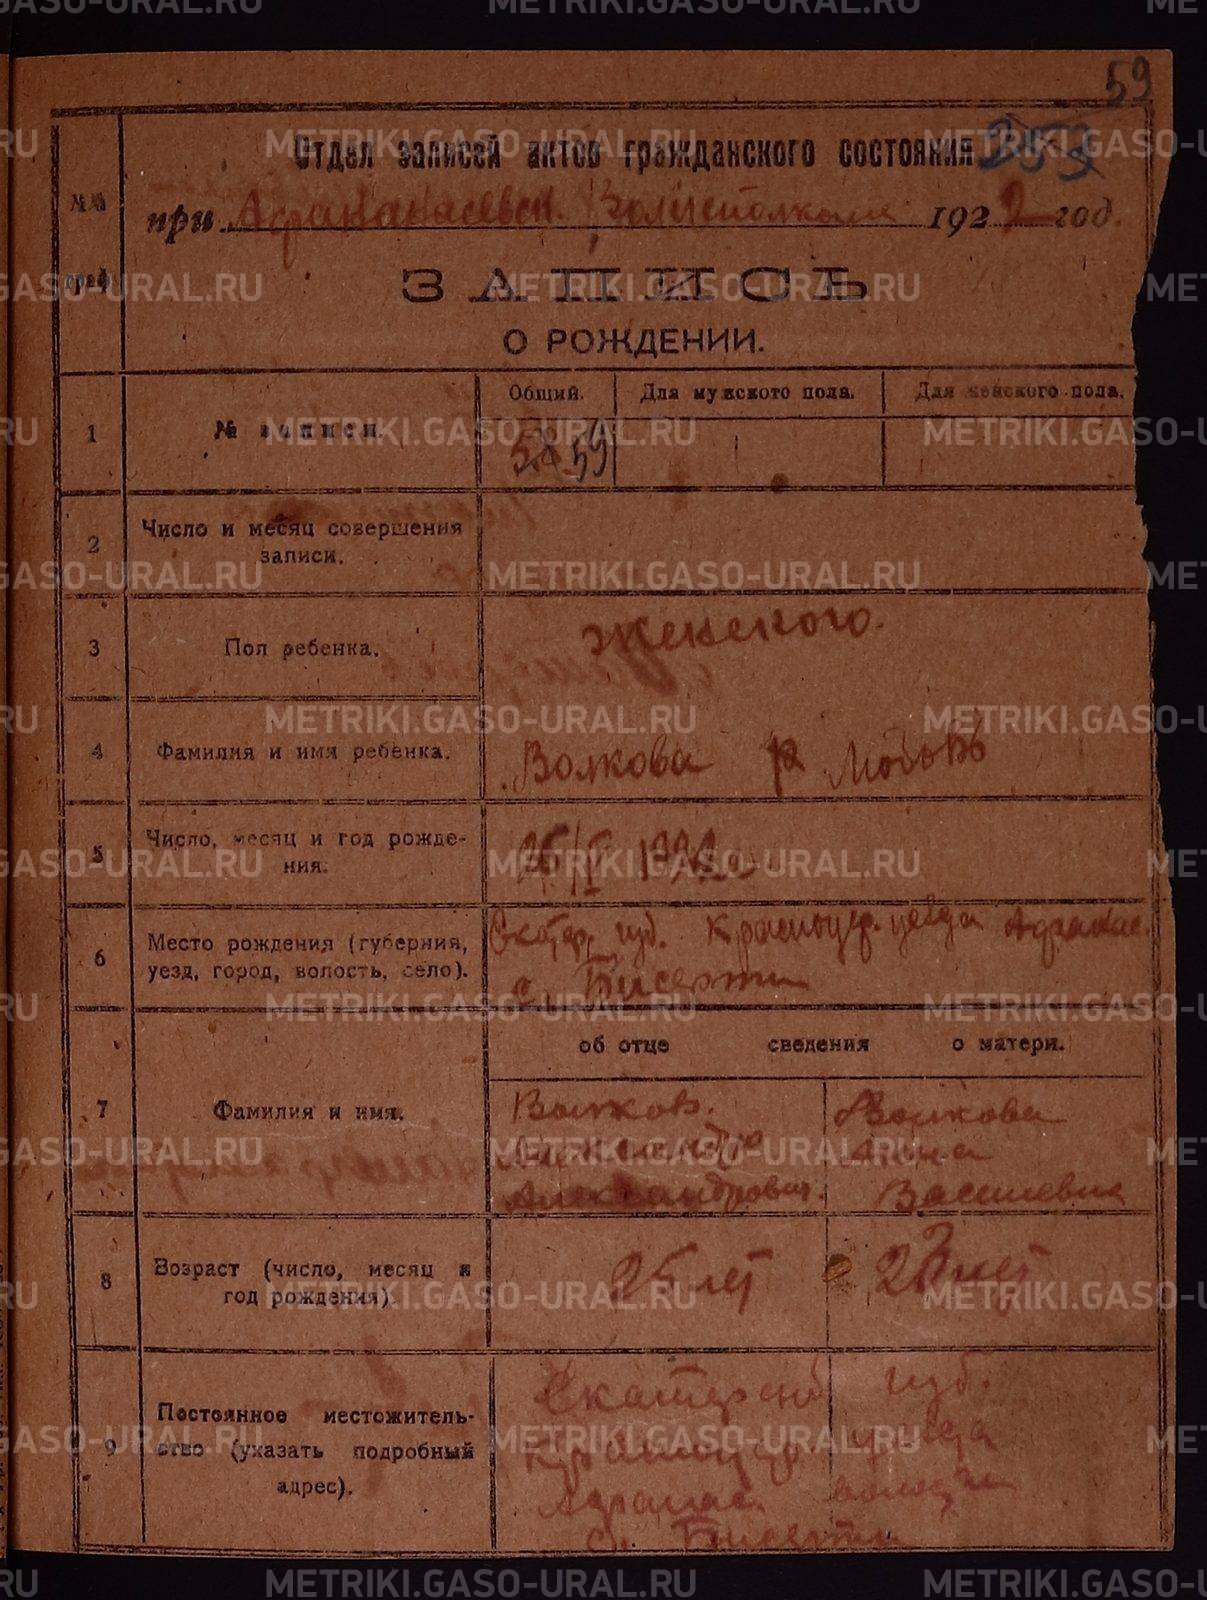 59
Отдел записей актов гражданского состояния 253
№№ граф.
при Афанакасевск. Волисполкоме 1922 год.
ЗАПИСЬ
О РОЖДЕНИИ.
Общий. Для мужского пола. Для женского пола.
1 № записи 58 59
2 Число и месяц совершения
записи.
3 Пол ребенка. женского.
4 Фамилия и имя ребенка. Волкова Любовь
5 Число, месяц и год рожде-
ния. 25/V 1922 г.
6 Место рождения (губерния, Екатер. губ. Красноуф. уезда Афанас.
уезд, город, волость, село). с. Бисерти
об отце сведения о матери.
7 Фамилия и имя. Волков. Волкова
Александр Анна
Александрович. Васильевна
8 Возраст (число, месяц и
год рождения). 25 лет 23 лет
9 Постоянное местожитель-
ство (указать подробный
адрес).
Екатерснб губ.
Красноуф. уезда
Афанас. волости
с. Бисерти
METRIKI.GASO-URAL.RU